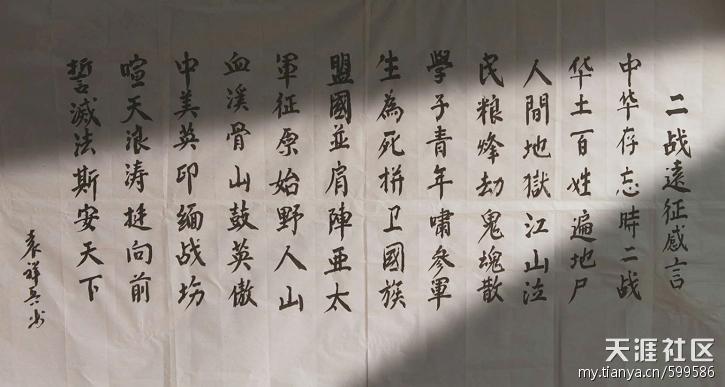 二战遠征感言
中华存忘時二战
华土百姓遍地尸
人間地獄江山泣
民粮烽劫鬼塊散
學子青年嘯參軍
生為死拼卫國族
盟國並肩陣亜太
軍征原始野人山
血溪骨山鼓英傲
中美英印缅战场
喧天浪涛挺向前
誓滅法斯安天下
袁祥兵书
天涯社区
my.tianya.cn/599586